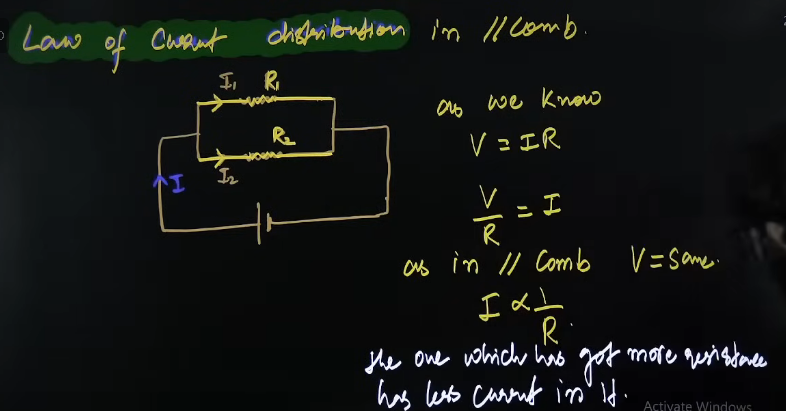 Law of Current distribution in // Comb.
I₁ R₁
R₂
I₂
I
as we know
V = IR
V/R = I
as in // Comb V = Same.
I ∝ 1/R.
the one which has got more resistance
has less current in it.
Activate Windows